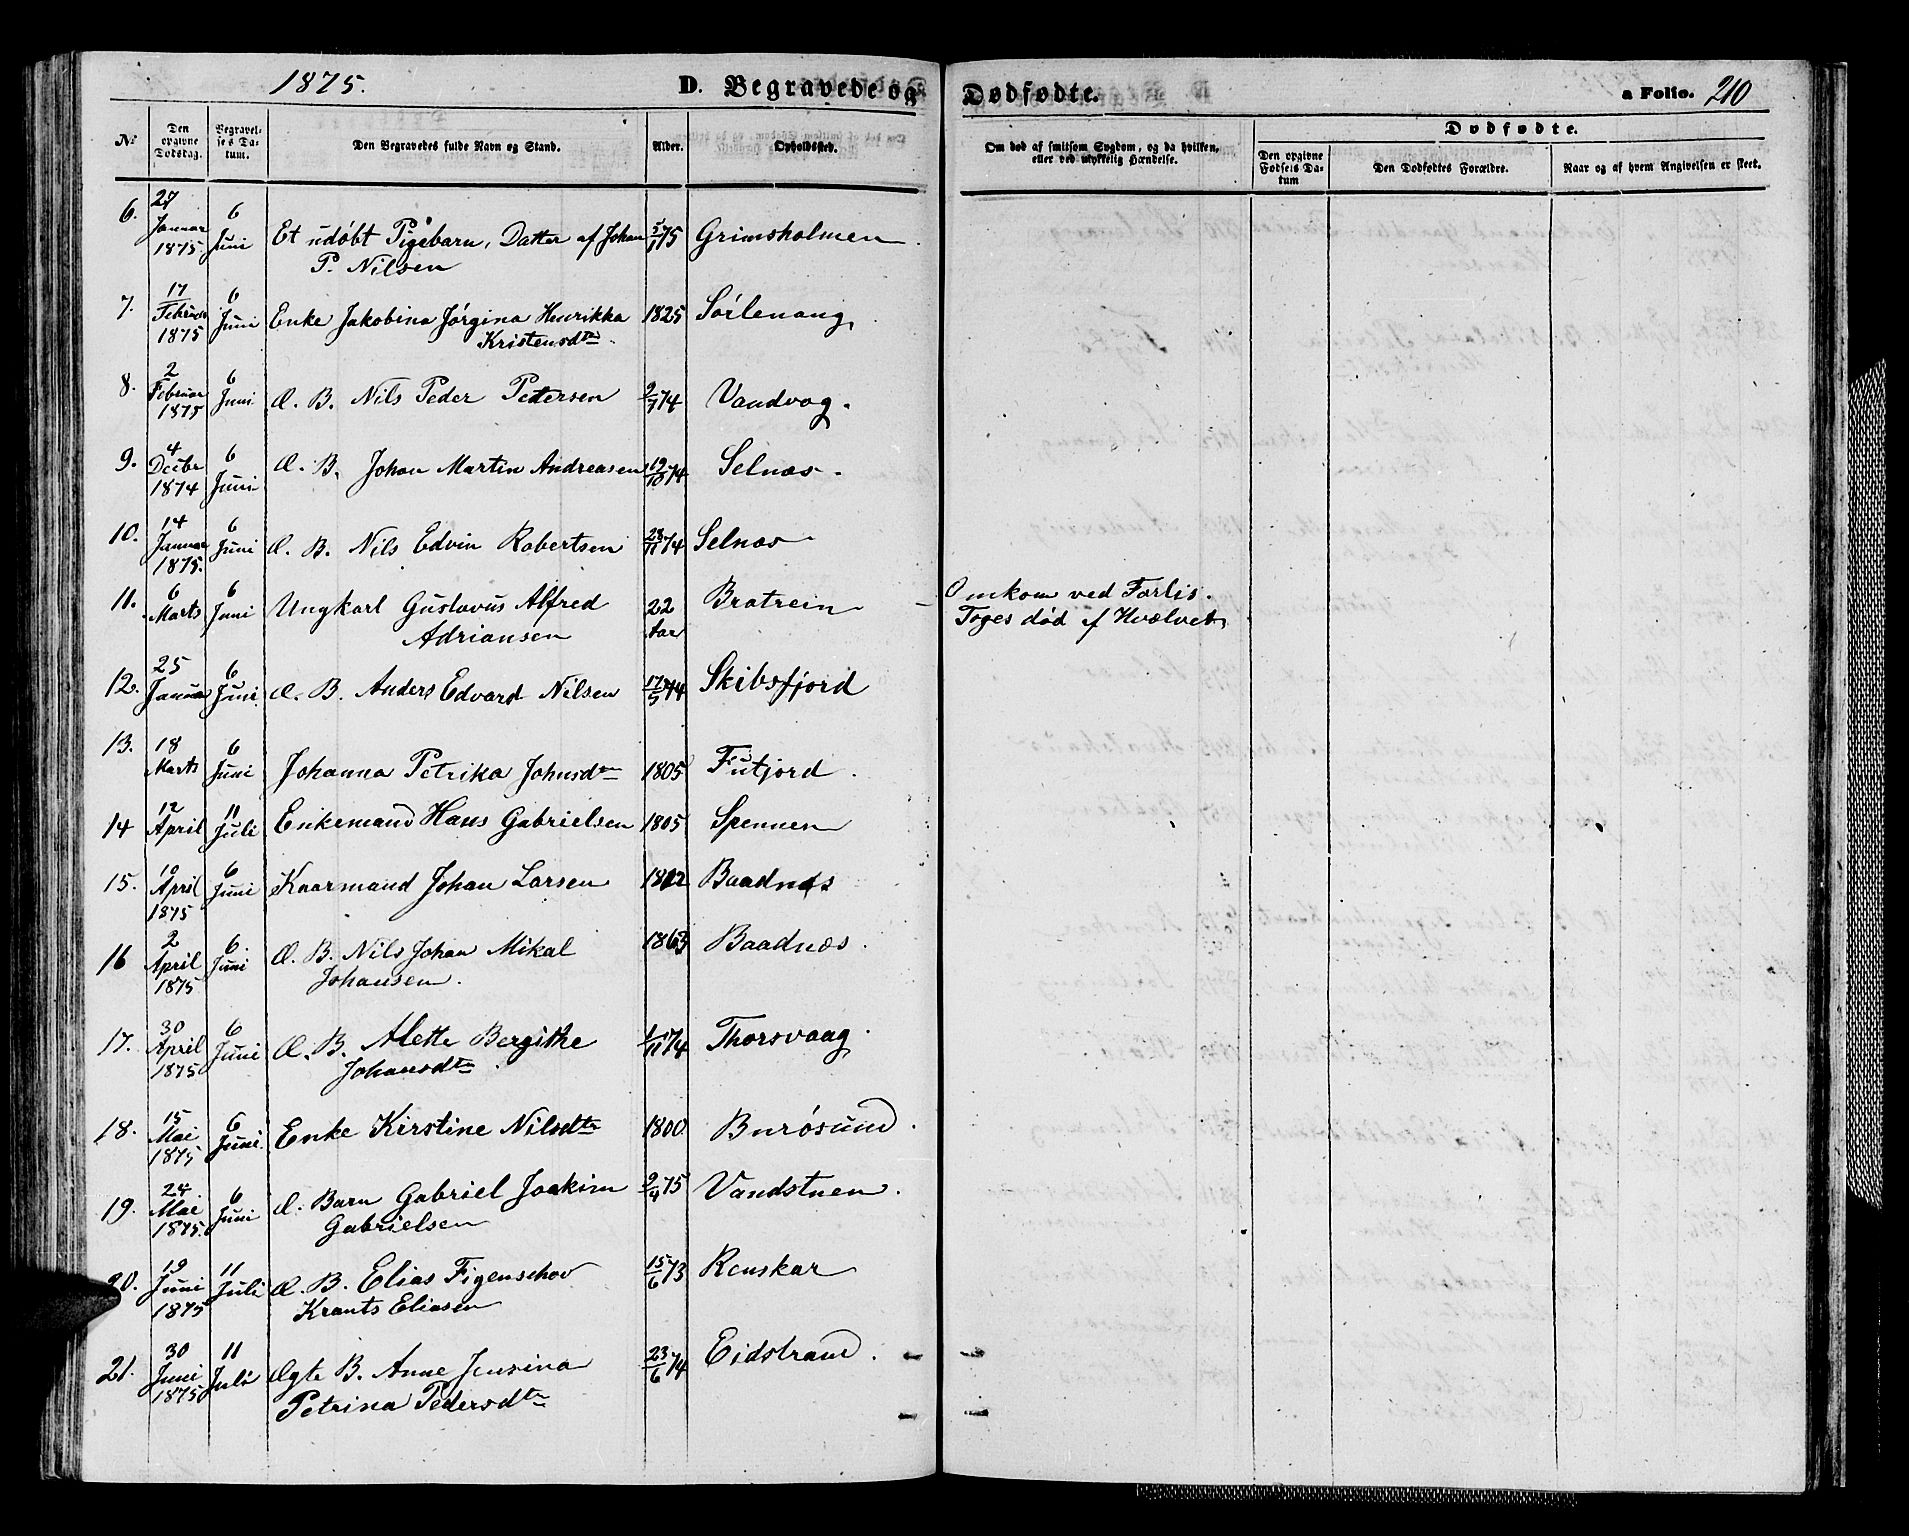 1875. D. Begravede og Dødfødte. a Folio. 210
No. Den opgivne Dødsdag. Begravelses Datum. Den Begravedes fulde Navn og Stand. Alder. Opholdssted. Om død af smitsom Sygdom, og da hvilken, eller ved ulykkelig Hændelse. Dødfødte.
Den opgivne Fødsels Datum Den Dødfødtes Forældre. Naar og af hvem Angivelsen er skeet.
6. 27 Januar 1875 6 Juni Et udøbt Pigebarn, Datter af Johan 5/1 75 Grimsholmen
P. Nilsen
7. 17 Februar 1875 6 Juni Enke Jakobina Jørgina Henrikka 1825 Sørlenang
Kristensdtr.
8. 2 Februar 1875 6 Juni Æ. B. Nils Peder Petersen 2/7 74 Vandvog.
9. 4 Decbr 1874 6 Juni Æ. B. Johan Martin Andreasen 19/10 74 Selnæs.
10. 14 Januar 1875. 6 Juni Æ. B. Nils Edvin Robertsen 23/11 74 Selnæs
11. 6 Marts 6 Juni Ungkarl Gustavus Alfred 22 Aar Bratrein Omkom ved Forlis.
Adriansen Toges død af Hvælvet
12. 25 Januar 6 Juni Æ. B. Anders Edvard Nilsen 17/5 74 Skibsfjord
13. 18 Marts 6 Juni Johanna Petrika Johnsdtr 1805 Futfjord.
14 12 April 11 Juli Enkemand Hans Gabrielsen 1805 Spennen
15. 10 April 1875 6 Juni Kaarmand Johan Larsen 1812 Baadnæs
16 2 April 1875 6 Juni Æ. B. Nils Johan Mikal 1863 Baadnæs.
Johansen.
17. 30 April 1875 6 Juni Æ. B. Alette Bergithe 1/11 74 Thorsvaag.
Johansdtr.
18. 15 Mai 1875 6 Juni. Enke Kirstine Nilsdtr 1800 Burøsund.
19. 24 Mai 1875. 6 Juni Æ. Barn Gabriel Joakim 2/4 75 Vandstuen.
Gabrielsen
20. 19 Juni 1875 11 Juli Æ. B. Elias Figenschov 15/6 73 Renskar
Krants Eliasen
21. 30 Juni 1875 11 Juli Ægte B. Anne Jensina 23/6 74 Eidstrand.
Petrina Pedersdtr